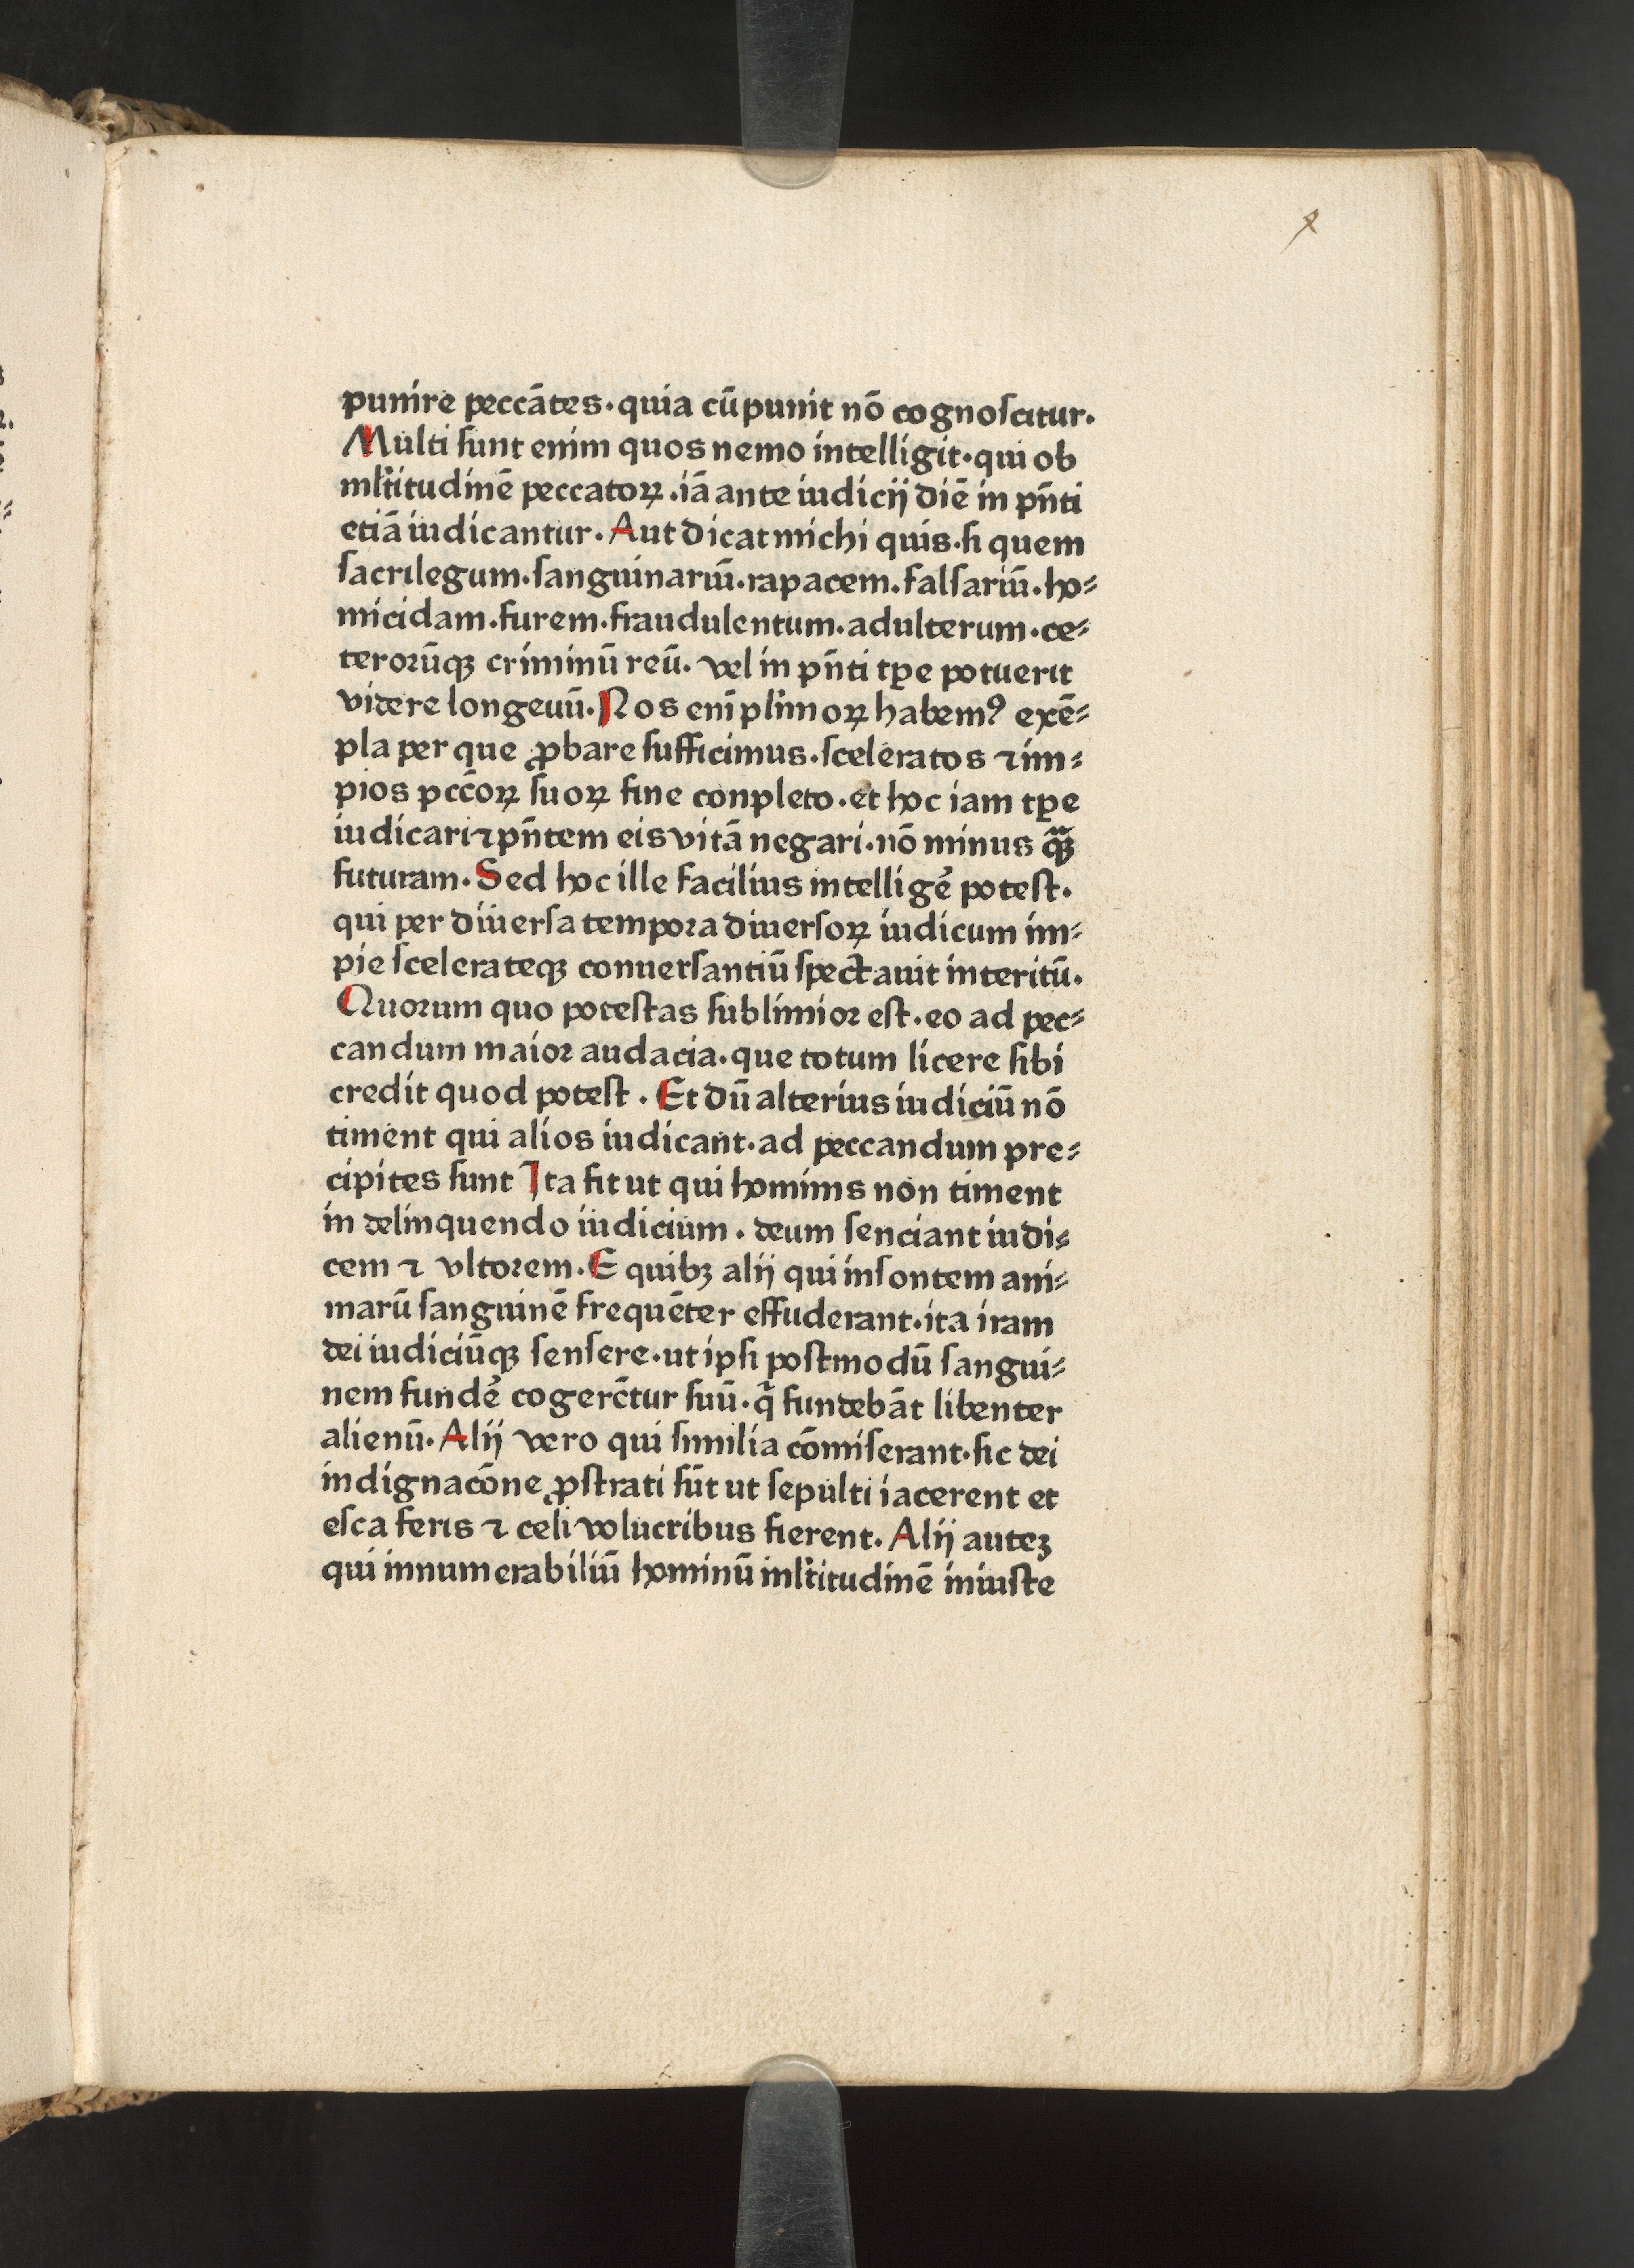 punire peccātes·quia cū punit nō cognoſcitur.
Multi ſunt enim quos nemo intelligit·qui ob
ml̄titudinē peccatoꝝ·iā ante iudicij diē in pn̄ti
etiā iudicantur. Aut dicat michi quis·ſi quem
ſacrilegum·ſanguinariū·rapacem·falſariū·ho⸗
micidam·furem·fraudulentum·adulterum·ce⸗
terorūqꝫ criminū reū. vel in pn̄ti tꝑe potuerit
videre longeuū. Nos enī pl̄imoꝝ habemꝰ exē⸗
pla per que ꝓbare ſufficimus·ſceleratos ⁊ im⸗
pios pcc̄oꝝ ſuoꝝ fine conpleto·et hoc iam tꝑe
iudicari ⁊ pn̄tem eis vitā negari·nō minus qᷓꝫ
futuram. Sed hoc ille facilius intelligē potest.
qui per diuerſa tempora diuerſoꝝ iudicum im⸗
pie ſcelerateqꝫ conuerſantiū ſpectauit interitū.
Quorum quo poteſtas ſublimior eſt·eo ad pec⸗
candum maior audacia·que totum licere ſibi
credit quod poteſt. Et dū alterius iudiciū nō
timent qui alios iudicant·ad peccandum pre⸗
cipites ſunt Ita fit ut qui hominis non timent
in delinquendo iudicium. deum ſenciant iudi⸗
cem ⁊ vltorem. E quibꝫ alij qui inſontem ani⸗
marū ſanguinē frequēter effuderant·ita iram
dei iudiciūqꝫ ſenſere·ut ipſi poſtmodū ſangui⸗
nem fundē cogerētur ſuū·q̄ fundebāt libenter
alienū. Alij vero qui ſimilia cōmiſerant·ſic dei
indignacōne ꝓſtrati ſūt ut ſepulti iacerent et
eſca feris ⁊ celi volucribus fierent. Alij auteꝫ
qui innumerabiliū hominū ml̄titudinē iniuſte